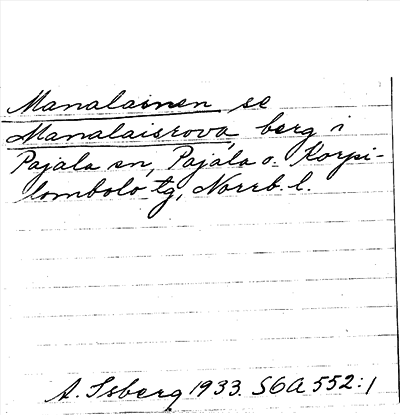 Manalainen se
Manalaisrova, berg i
Pajala sn, Pajala o. Korpi-
lombolo tg, Norrb. l.
A. Isberg 1933. SGA 552:1